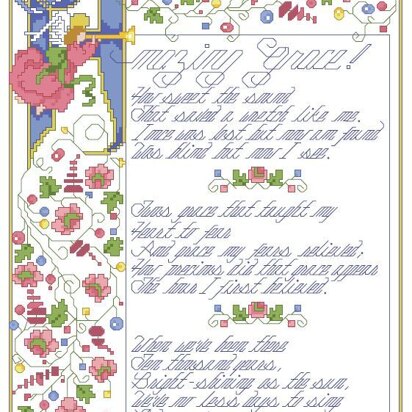 Amazing Grace!
How sweet the sound
That saved a wretch like me.
I once was lost but now am found
Was blind but now I see.
Twas grace that taught my
Heart to fear
And grace my fears relieved;
How precious did that grace appear
The hour I first believed.
When we've been there
Ten thousand years,
Bright-shining as the sun,
We've no less days to sing